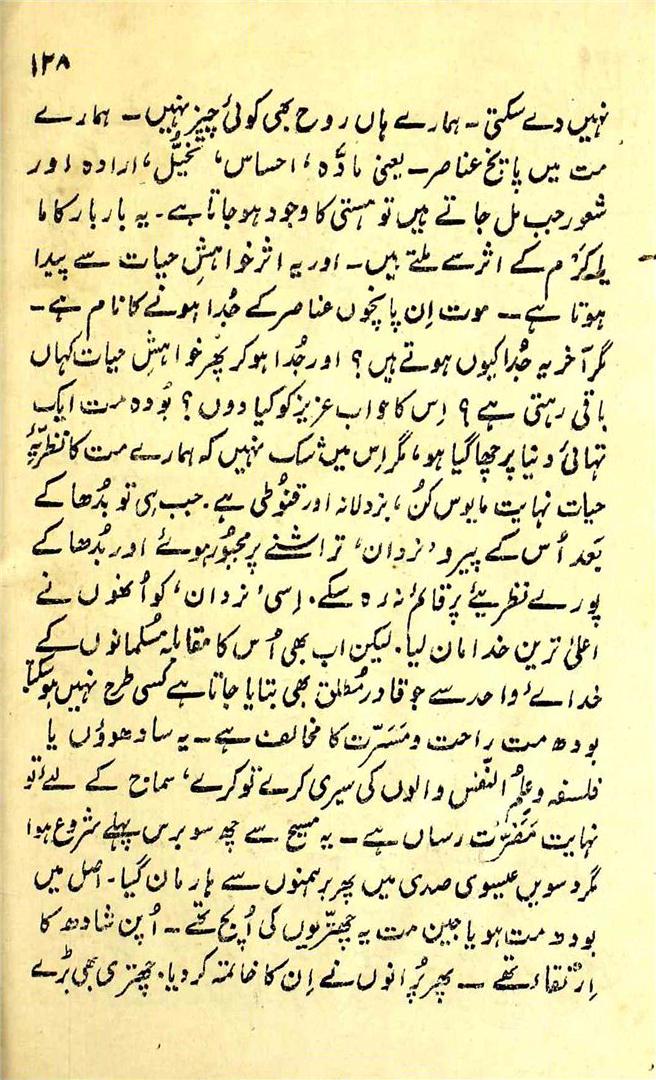 ۱۲۸
نہیں دے سکتی ۔ ہمارے ہاں روح بھی کوئی چیز نہیں ۔ ہمارے
مت میں پانچ عناصر ۔ یعنی مادّہ ، احساس ، تخیّل ، ارادہ اور
شعور جب مل جاتے ہیں تو ہستی کا وجود ہو جاتا ہے ۔ یہ بار بار کاما
یا کرْم کے اثر سے ملتے ہیں ۔ اور یہ اثر خواہشِ حیات سے پیدا
ہوتا ہے ۔ موت اِن پانچوں عناصر کے جُدا ہونے کا نام ہے ۔
مگر آخر یہ جُدا کیوں ہوتے ہیں ؟ اور جُدا ہو کر پھر خواہشِ حیات کہاں
باقی رہتی ہے ؟ اِس کا جواب عزیز کو کیا دوں ؟ بُودھ مت ایک
تہائی دنیا پر چھا گیا ہو ، مگر اِس میں شک نہیں کہ ہمارے مت کا نظریۂ
حیات نہایت مایوس کُن ، بزدلانہ اور قنوُطی ہے . جب ہی تو بُدھا کے
بَعد اُس کے پیرو ' نردان ' تراشنے پر مجبُور ہوئے اور بُدھا کے
پورے نظریئے پر قائم نہ رہ سکے . اِسی ' نردان ' کو اُنھوں نے
اعلیٰ ترین خدا مان لیا . لیکن اب بھی اُس کا مقابلہ مُسلمانوں کے
خدائے واحد سے جو قادرِ مُطلق بھی بتایا جاتا ہے کسی طرح نہیں ہو سکتا
بودھ مت راحت و مَسَرّت کا مخالف ہے ۔ یہ سادھوؤں یا
فلسفہ و علمُ النّفس والوں کی سیری کرے تو کرے ، سماج کے لئے تو
نہایت مَضَرّت رساں ہے ۔ یہ مسیح سے چھ سو برس پہلے شروع ہوا
مگر دسویں عیسوی صدی میں پھر برہمنوں سے ہار مان گیا . اصل میں
بودھ مت ہو یا جین مت یہ چھتریوں کی اُپج تھے ۔ اُپن شادھ کا
اِرتقاء تھے ۔ پھر پُرانوں نے اِن کا خاتمہ کر دیا . چھتری بھی بڑے